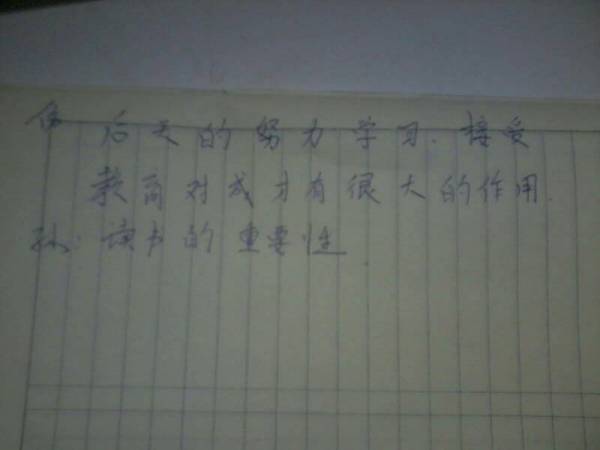 伤 后天的努力学习.接受
教育对成才有很大的作用.
孙:读书的重要性